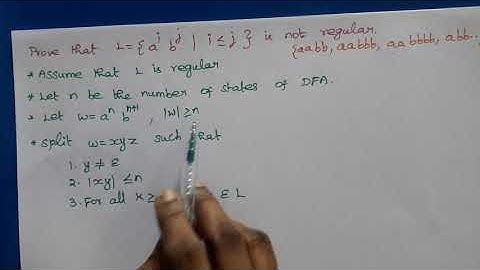 Prove that L = { aⁱ bʲ | i ≤ j } is not regular.
{aabb, aabbb, aabbbb, abb..
* Assume that L is regular
* Let n be the number of states of DFA.
* Let w = aⁿ bⁿ⁺¹, |w| ≥ n
* split w = xyz such that
1. y ≠ ε
2. |xy| ≤ n
3. For all K ≥ ε L